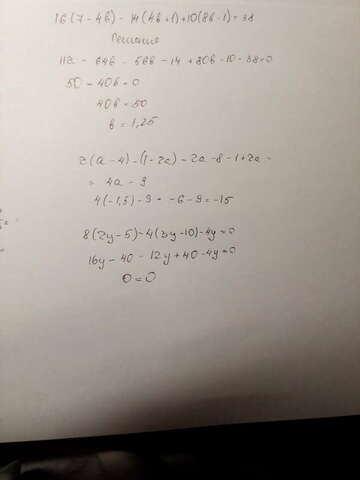 16(7-4b)-14(4b+1)+10(8b-1)=38
Решение
112-64b-56b-14+80b-10-38=0
50-40b=0
40b=50
b=1,25
2(a-4)-(1-2a)=2a-8-1+2a=
=4a-9
4(-1,5)-9=-6-9=-15
8(2y-5)-4(3y-10)-4y=0
16y-40-12y+40-4y=0
0=0